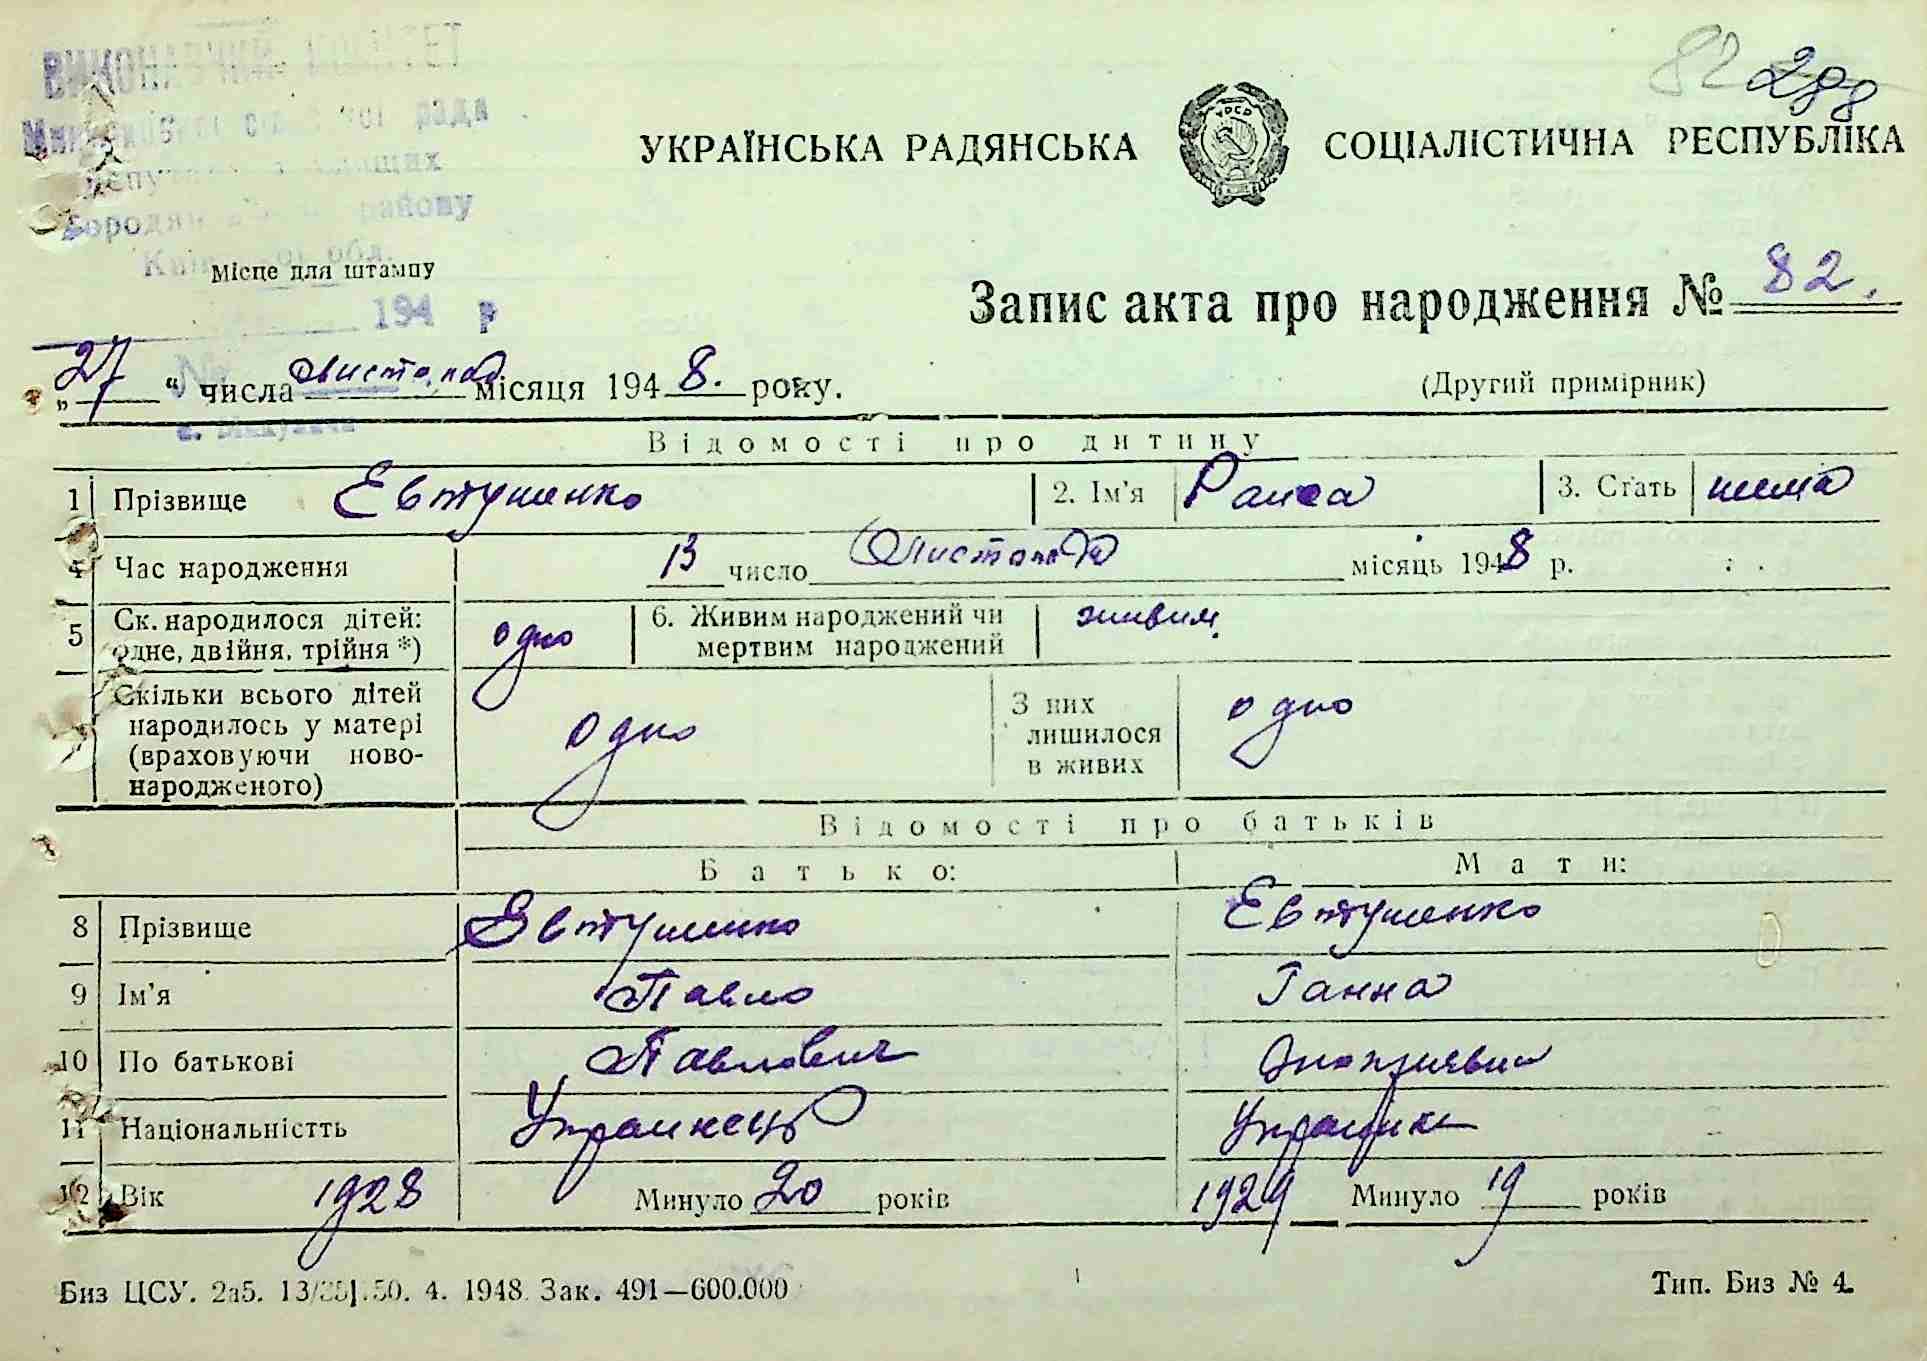 82 288
ВИКОНАВЧИЙ КОМІТЕТ
рада
району
обл.
УКРАЇНСЬКА РАДЯНСЬКА СОЦІАЛІСТИЧНА РЕСПУБЛІКА
УРСР
Місце для штампу
194 р
Запис акта про народження № 82.
„27“ числа листопад місяця 1948. року.
(Другий примірник)
№
Відомості про дитину
1 Прізвище Евтушенко 2. Ім'я Раиса 3. Стать жіноча
4 Час народження 13 число Листопад місяць 1948 р.
5 Ск. народилося дітей: одне, двійня, трійня *) одно 6. Живим народжений чи мертвим народжений живим.
7 Скільки всього дітей народилось у матері (враховуючи ново-народженого) одно З них лишилося в живих одно
Відомості про батьків
Батько: Мати:
8 Прізвище Евтушенко Евтушенко
9 Ім'я Павло Ганна
10 По батькові Павлович
11 Національністть Украинець Украинка
12 Вік 1928 Минуло 20 років 1929 Минуло 19 років
Биз ЦСУ. 2а5. 50. 4. 1948 Зак. 491—600.000
Тип. Биз № 4.